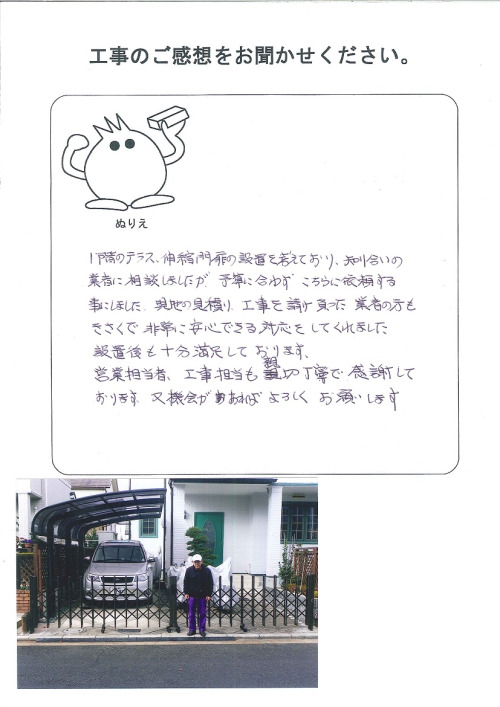 工事のご感想をお聞かせください。
ぬりえ
1階のテラス、伸縮門扉の設置を考えており、知り合いの
業者に相談しましたが、予算に合わず こちらに依頼する
事にしました。現地の見積り、工事を請け負った 業者の方も
きさくで 非常に安心できる対応をしてくれました
設置後も十分満足しております、
営業担当者、工事担当も親切丁寧で 感謝して
おります。又機会があればよろしくお願いします